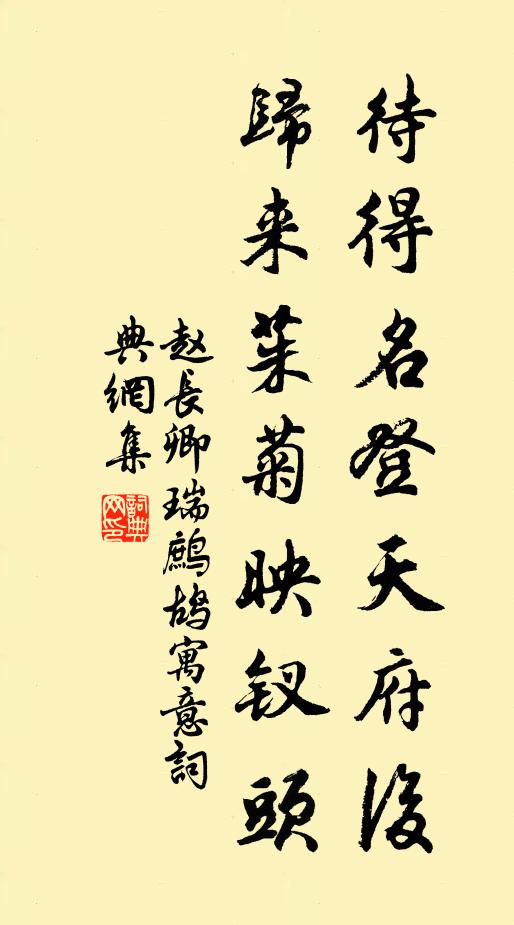 待得名登天府後
歸来茱菊映钗頭
赵長卿瑞鷓鴣寓意詞
典網集
詞典
网印